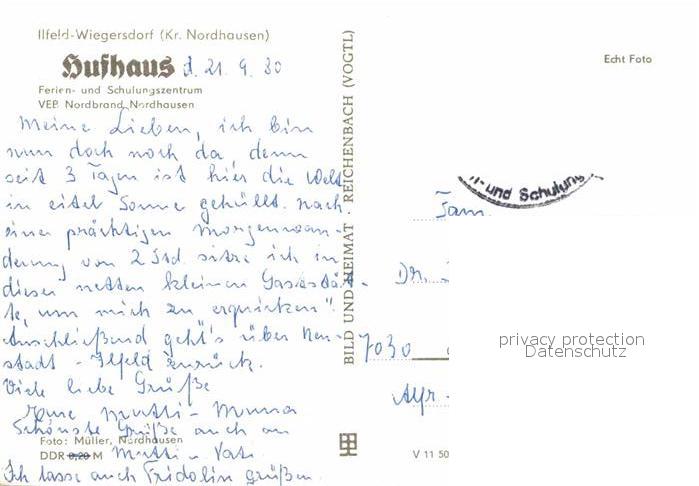 Ilfeld-Wiegersdorf (Kr. Nordhausen)
Hufhaus d. 21. 9. 80
Ferien- und Schulungszentrum
VEB Nordbrand, Nordhausen
Meine Lieben, ich bin
nun doch noch da, denn
seit 3 Tagen ist hier die Welt
in eitel Sonne gehüllt. Nach
einer prächtigen Morgenwan-
derung von 2 Std. sitze ich in
dieser netten kleinen Gaststät-
te, um mich zu erquicken"!
Anschließend geht's über Neu-
stadt - Ilfeld zurück.
Viele liebe Grüße
Eure Mutti - Mama
Schönste Grüße auch an
Foto: Müller, Nordhausen
DDR 0,20 M
Mutti u. Vati.
Ich lasse auch Fridolin grüßen.
BILD UND HEIMAT . REICHENBACH (VOGTL)
Echt Foto
- und Schulung
Fam.
Dr.
7030
V 11 50
privacy protection
Datenschutz